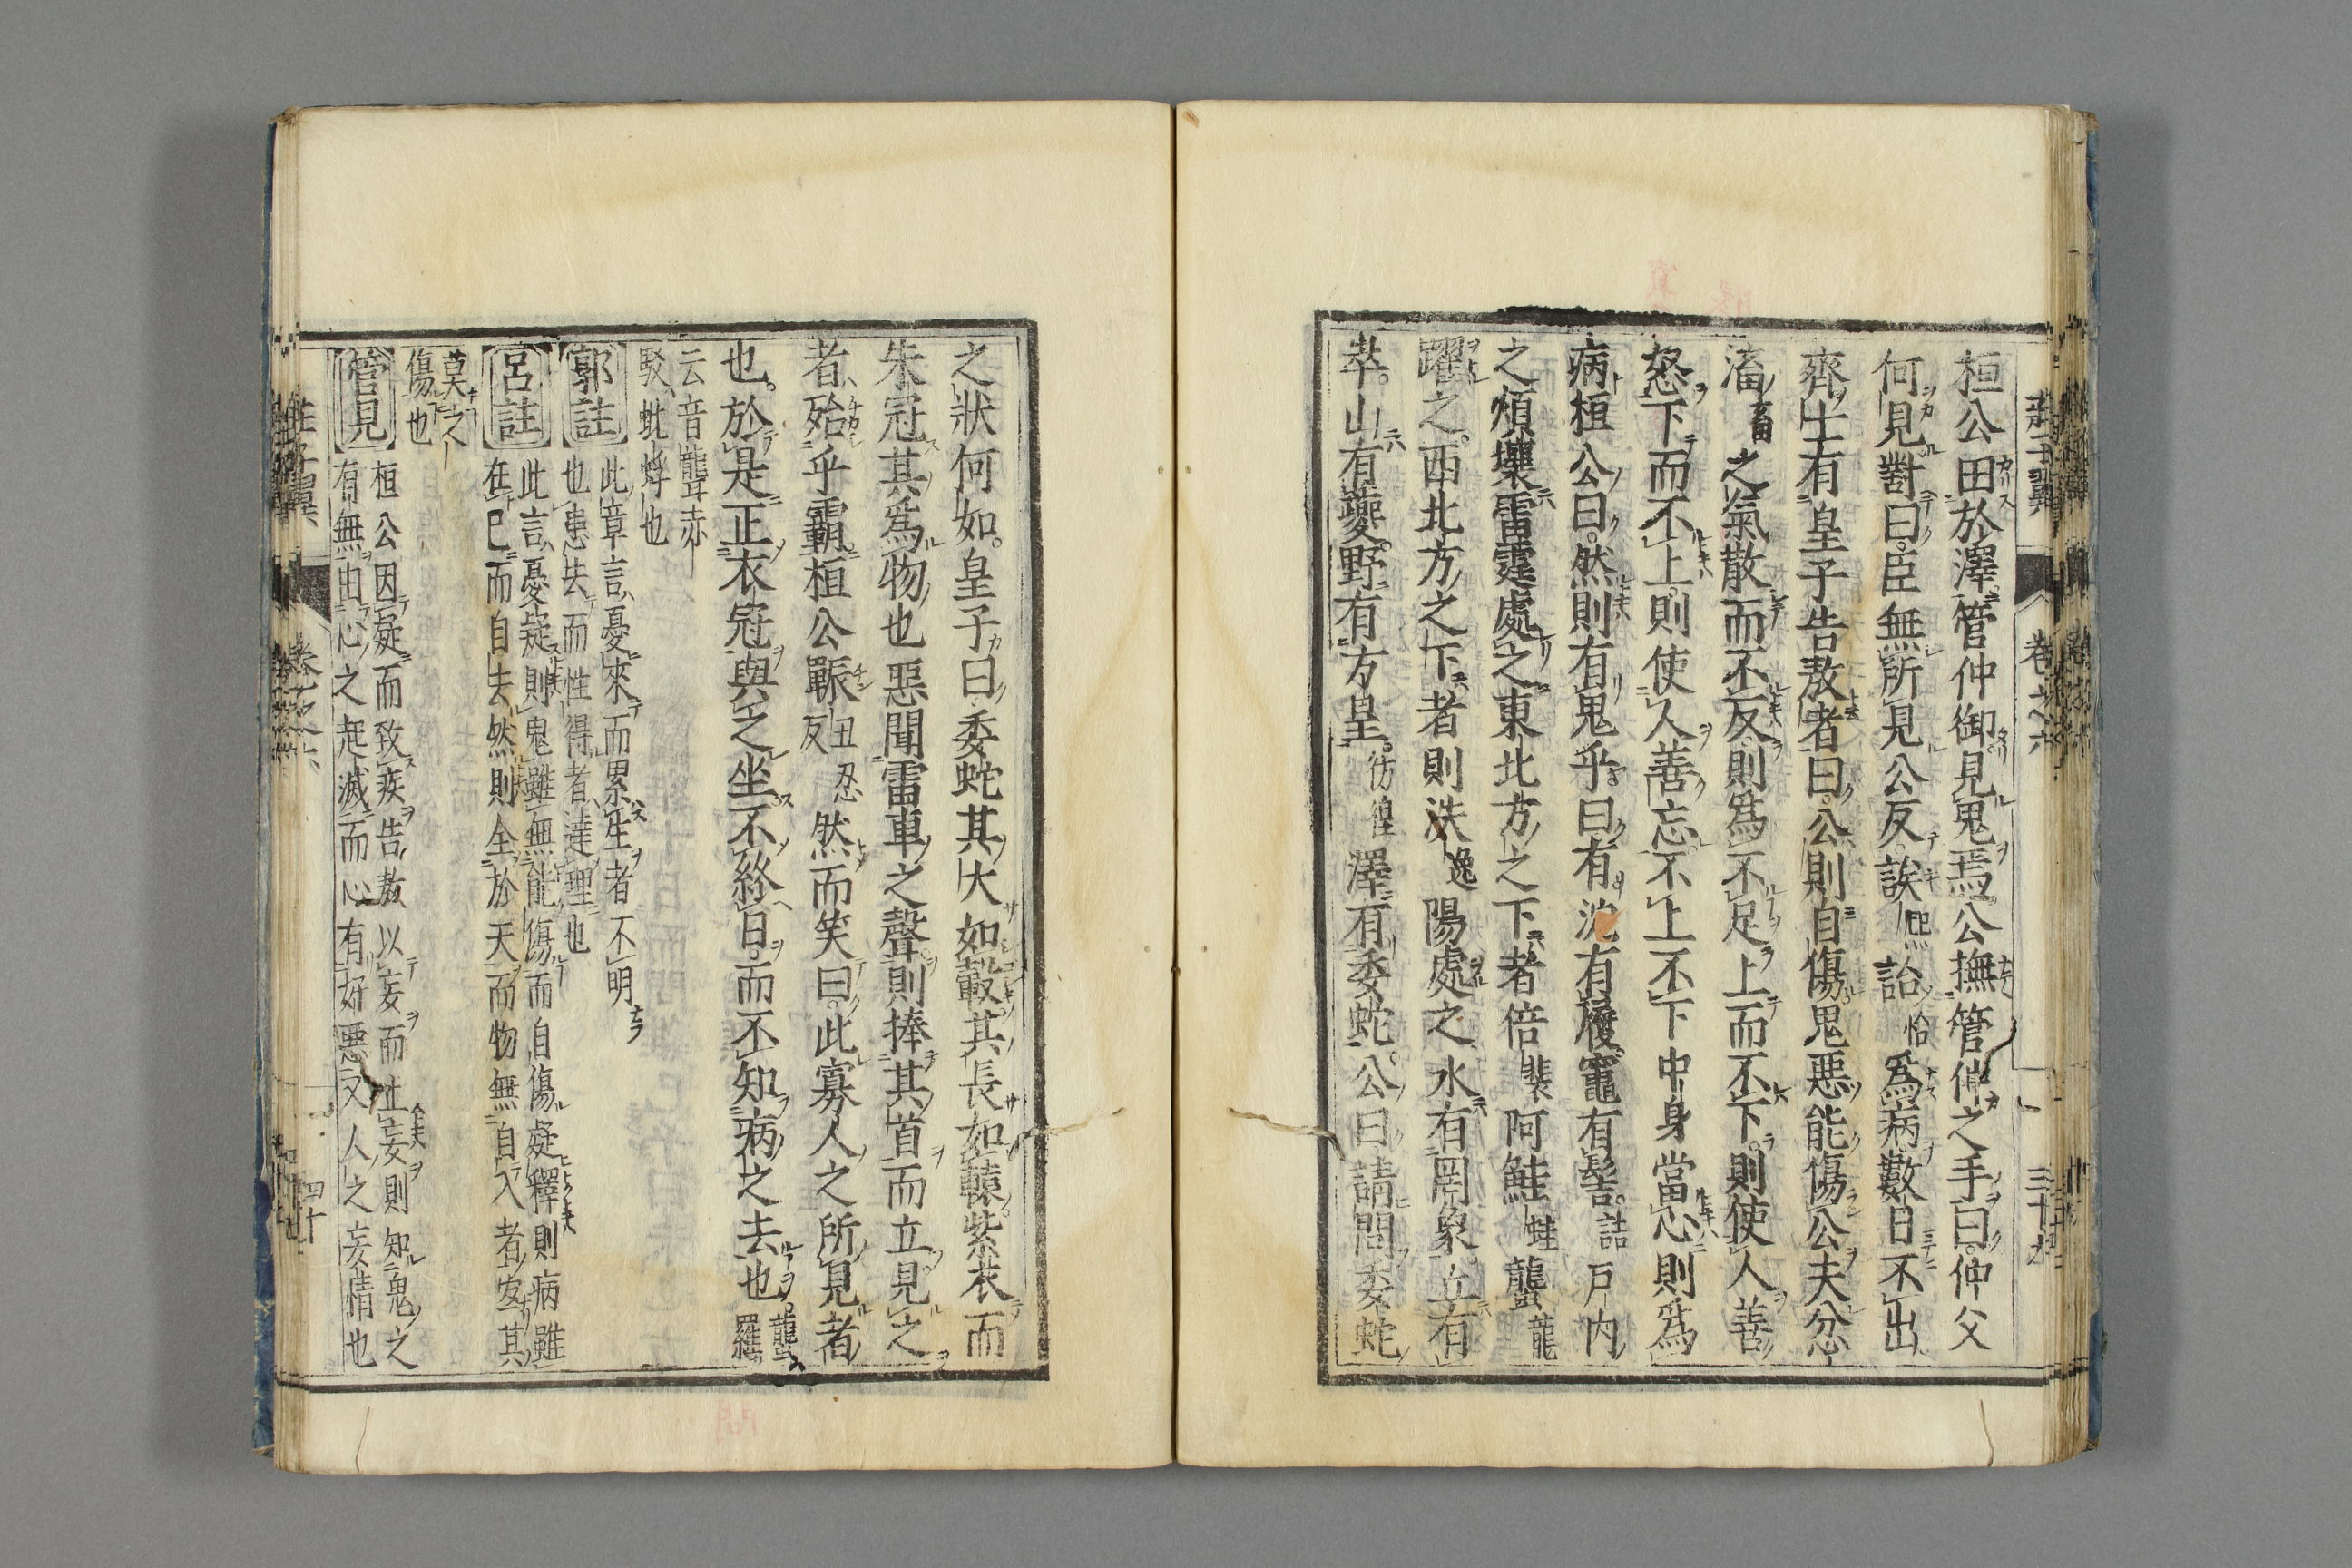 莊子翼
卷之六
三十九
桓公田於澤管仲御見鬼焉公撫管仲之手曰仲父
何見對曰臣無所見公反誒熙詒怡為病數日不出
齊士有皇子告敖者曰公則自傷鬼惡能傷公夫忿
滀畜之氣散而不反則為不足上而不下則使人善
怒下而不上則使人善忘不上不下中身當心則為
病桓公曰然則有鬼乎曰有沈有履竈有髻詰戶內
之煩壤雷霆處之東北方之下者倍裴阿鮭蛙蠪龍
躍之西北方之下者則泆逸陽處之水有罔象丘有
峷山有夔野有方皇彷徨澤有委蛇公曰請問委蛇
之狀何如皇子曰委蛇其大如轂其長如轅紫衣而
朱冠其為物也惡聞雷車之聲則捧其首而立見之
者殆乎霸桓公辴丑忍反然而笑曰此寡人之所見者
也於是正衣冠與之坐不終日而不知病之去也蠪羅
云音聾赤
駁蚍蜉也
郭註
此章言憂來而累生者不明
也患去而性得者達理也
呂註
此言憂疑則鬼雖無能傷而自傷疑釋則病雖
在已而自去然則全於天而物無自入者宜其
莫之
傷也
管見
桓公因疑而致疾告敖以妄而止妄則知鬼之
有無由心之起滅而心有好惡又人之妄情也
莊子翼
卷之六
四十